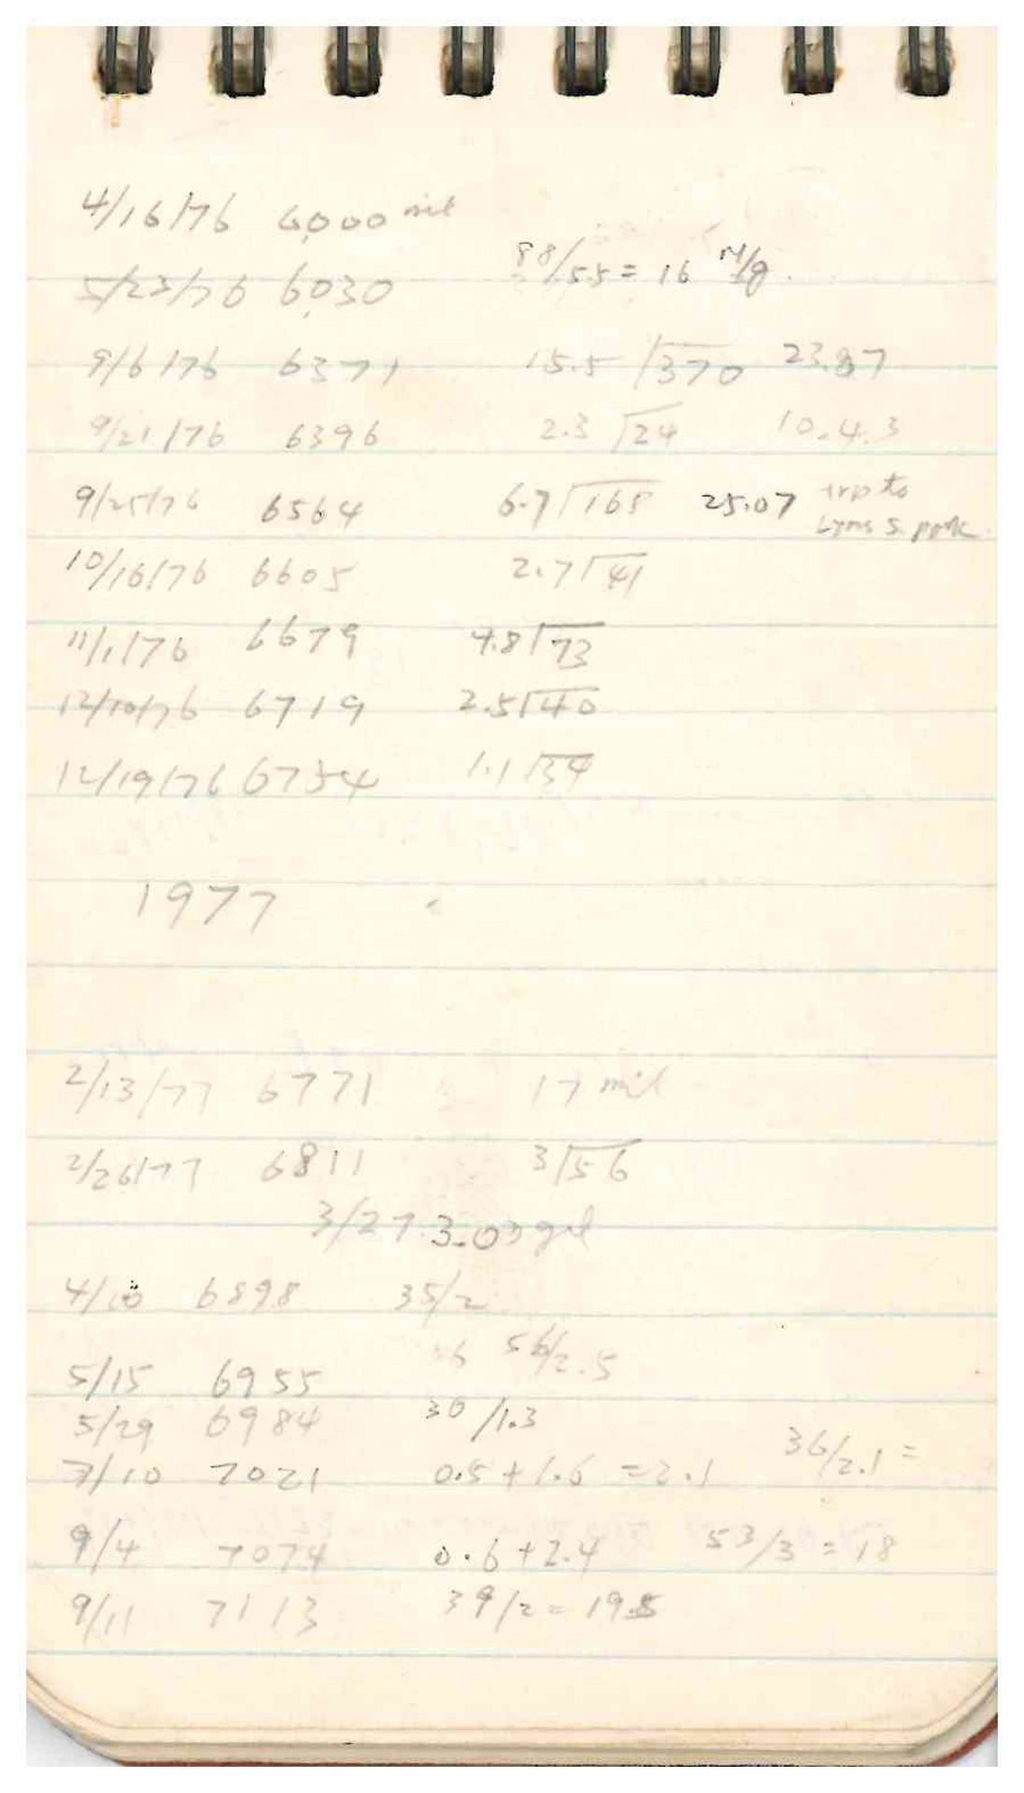 4/16/76 6,000 mil
88/5.5 = 16 M/g.
5/23/76 6,030
9/6/76 6371 15.5 √370 23.87
9/21/76 6396 2.3 √24 10.4.3
9/25/76 6564 6.7 √168 25.07 trip to
Lyms S. park.
10/16/76 6605 2.7 √41
11/1/76 6679 4.8 √73
12/10/76 6719 2.5 √40
12/19/76 6754 1.1 √34
1977
2/13/77 6771 17 mil
2/26/77 6811 3 √56
3/27 3.03 gal
4/10 6898 35/2
56/2.5
5/15 6955
5/29 6984 30/1.3
36/2.1 =
7/10 7021 0.5 + 1.6 = 2.1
9/4 7074 0.6 + 2.4 53/3 = 18
9/11 7113 39/2 = 19.5